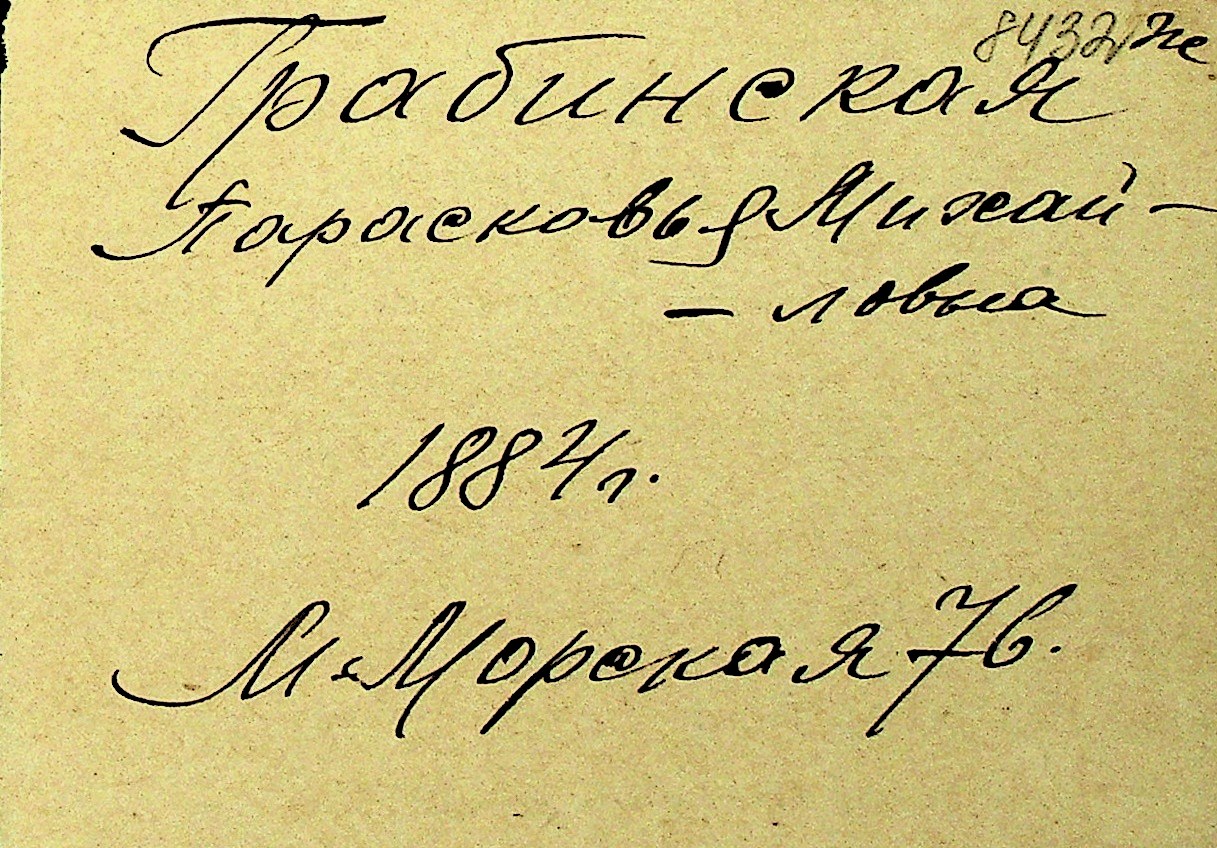 8432/же
Грабинская
Парасковья Михай-
- ловна
1884 г.
М. Морская 7в.